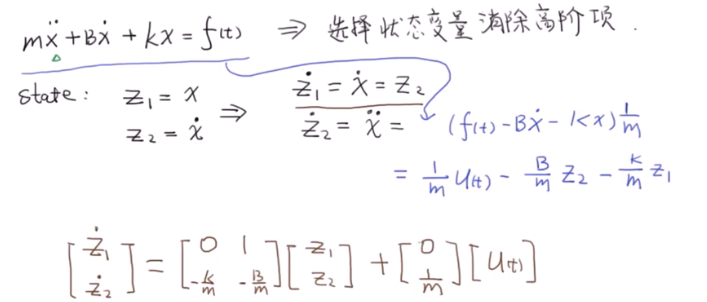 mẍ + Bẋ + kx = f(t) ⇒ 选择状态变量消除高阶项.
state: z₁ = x ⇒ ż₁ = ẋ = z₂
z₂ = ẋ ż₂ = ẍ = (f(t) - Bẋ - kx) 1/m
= 1/m u(t) - B/m z₂ - k/m z₁
[ż₁ ż₂] = [0 1 -k/m -B/m] [z₁ z₂] + [0 1/m] [u(t)]